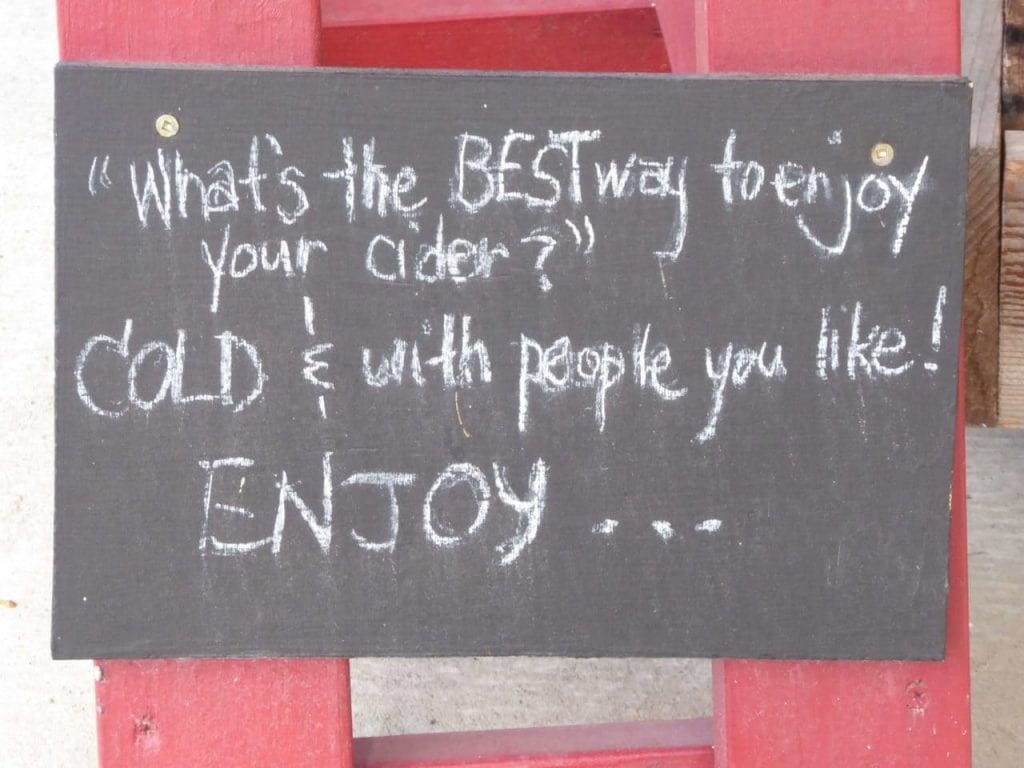 "What's the BEST way to enjoy
your cider?"
COLD & with people you like!
ENJOY...